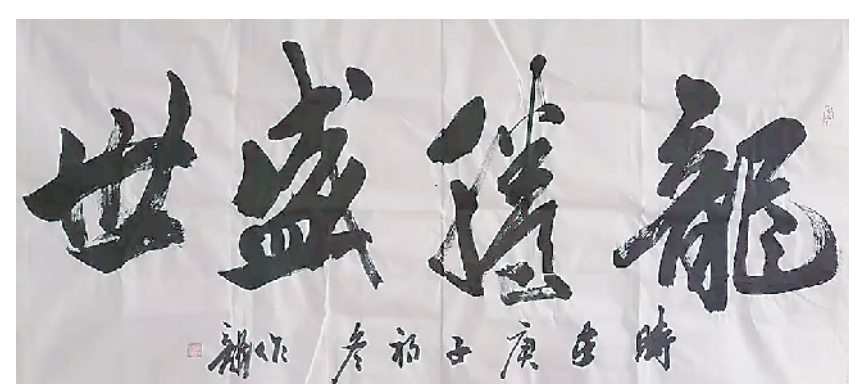 龍騰盛世
時在庚子初冬作